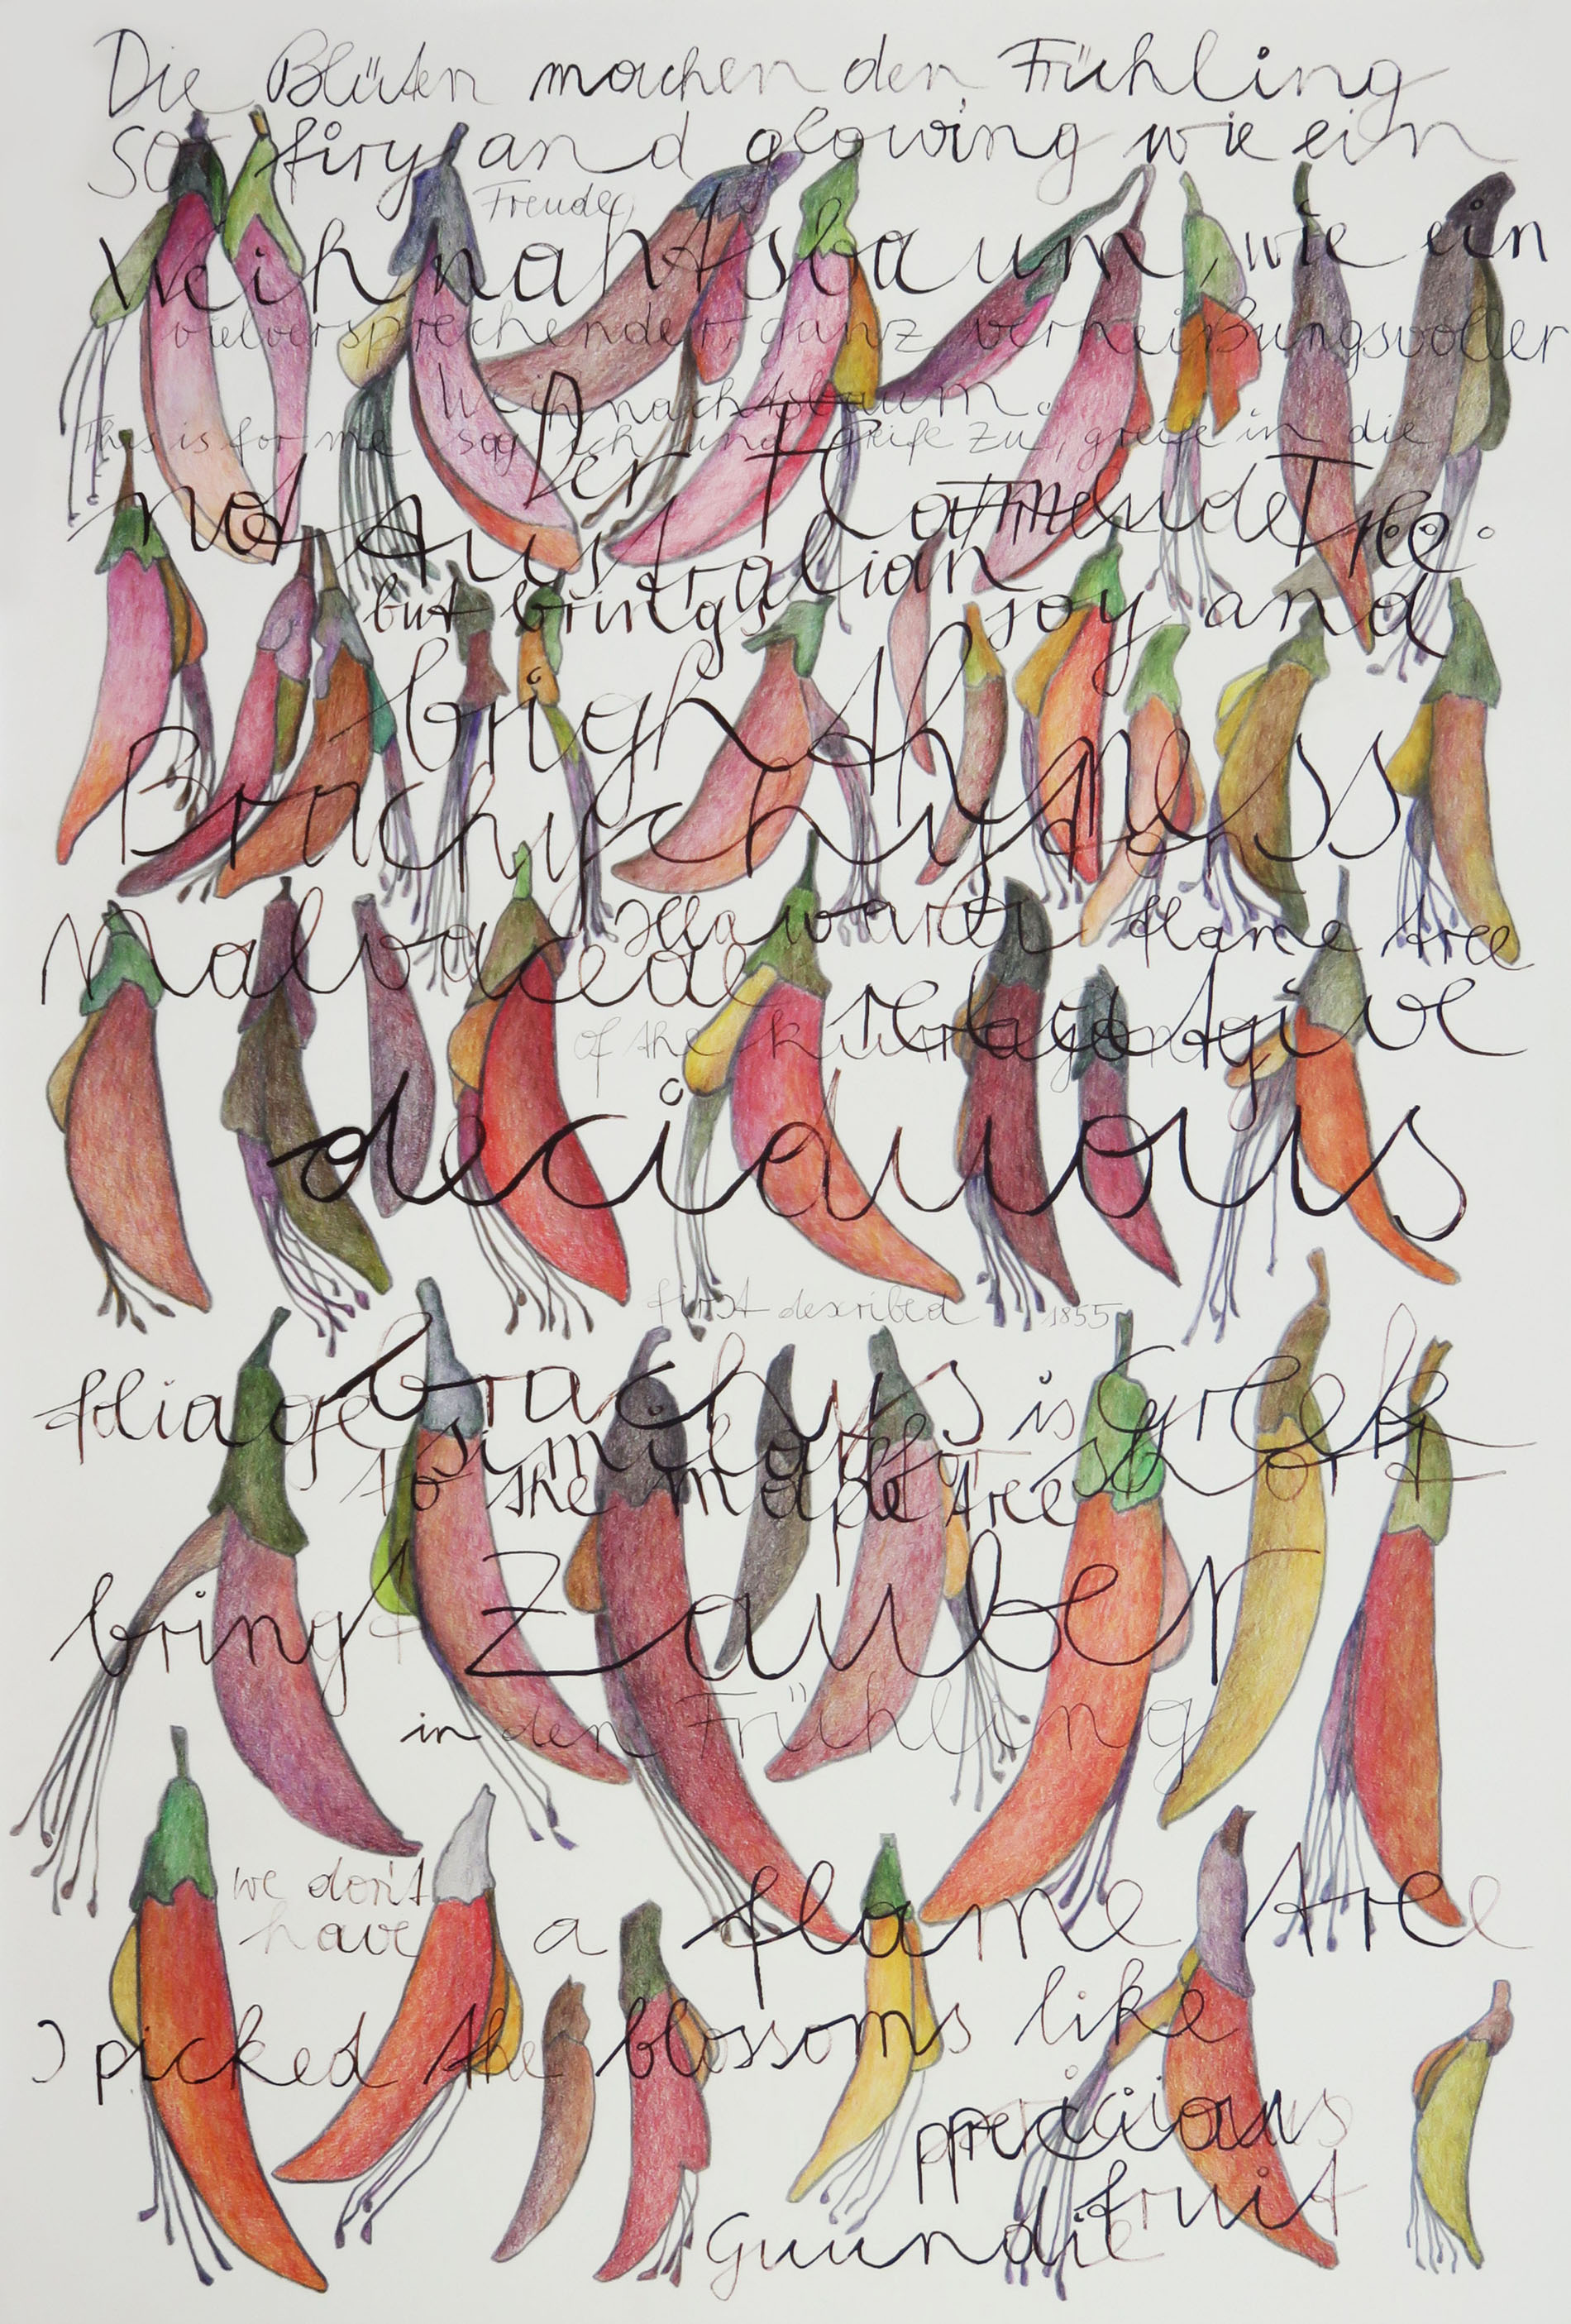 Die Blüten machen den Frühling
so firy and glowing wie ein
Freude
Weihnahtsbaum, wie ein
vielversprechender, ganz verheißungsvoller
Weihnachtsbaum.
This is for me sag ich und greife zu, greife in die
Der Flamende Tree.
not Australian
but brings joy and
brighthyness
Brachychy
Illawarra flame tree
Malvaceae
of the kurrajong
relative
deciduous
first described 1855
foliage brachys is Greek
similar short
to the maple tree
bring Zauber
in den Frühling
we don't
have a flame tree
I picked the blossoms like
precious
fruit
Guundie